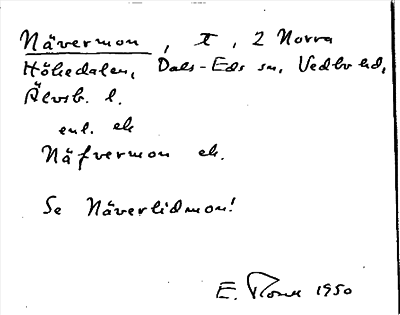 Nävermon, t, 2 Norra
Höhedalen, Dals-Eds sn, Vedbo hd,
Älvsb. l.
enl. ek
Näfvermon ek.
Se Näverlidmon!
E. 1950